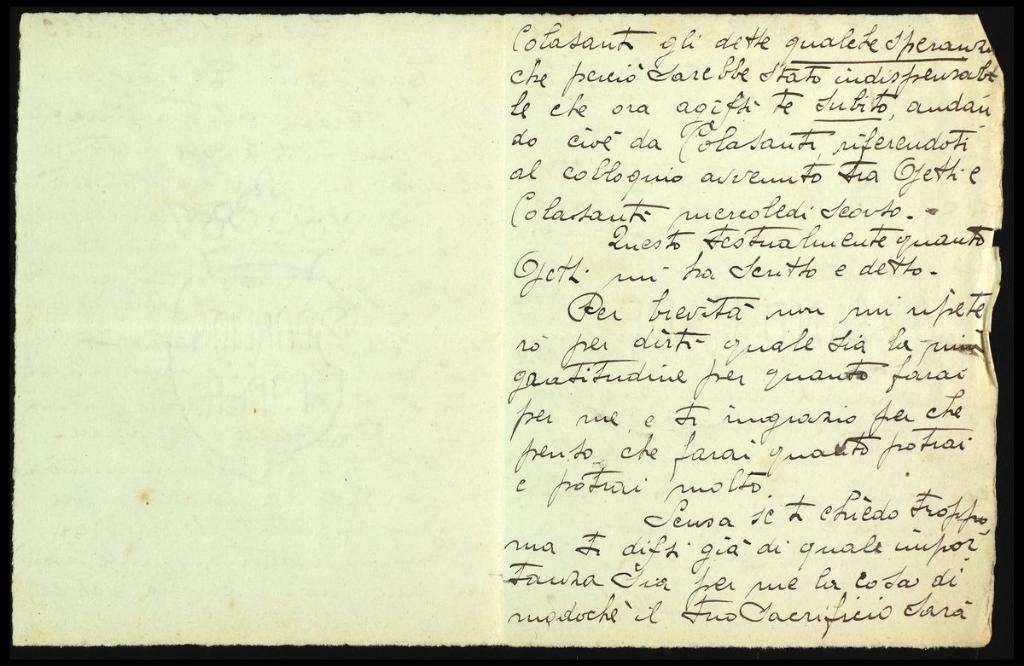 Colasanti gli dette qualche speranza
che perciò sarebbe stato indispensabi
le che ora agissi te subito, andan
do cioè da Colasanti, riferendoti
al colloquio avvenuto tra Ojetti e
Colasanti mercoledì scorso.-
Questo testualmente quanto
Ojetti mi ha scritto e detto.-
Per brevità non mi ripete
rò per dirti quale sia la mia
gratitudine per quanto farai
per me, e ti ringrazio per che
penso che farai quanto potrai
e potrai molto.
Scusa se ti chiedo troppo,
ma ti dissi già di quale impor
tanza sia per me la cosa di
modochè il tuo sacrificio sarà